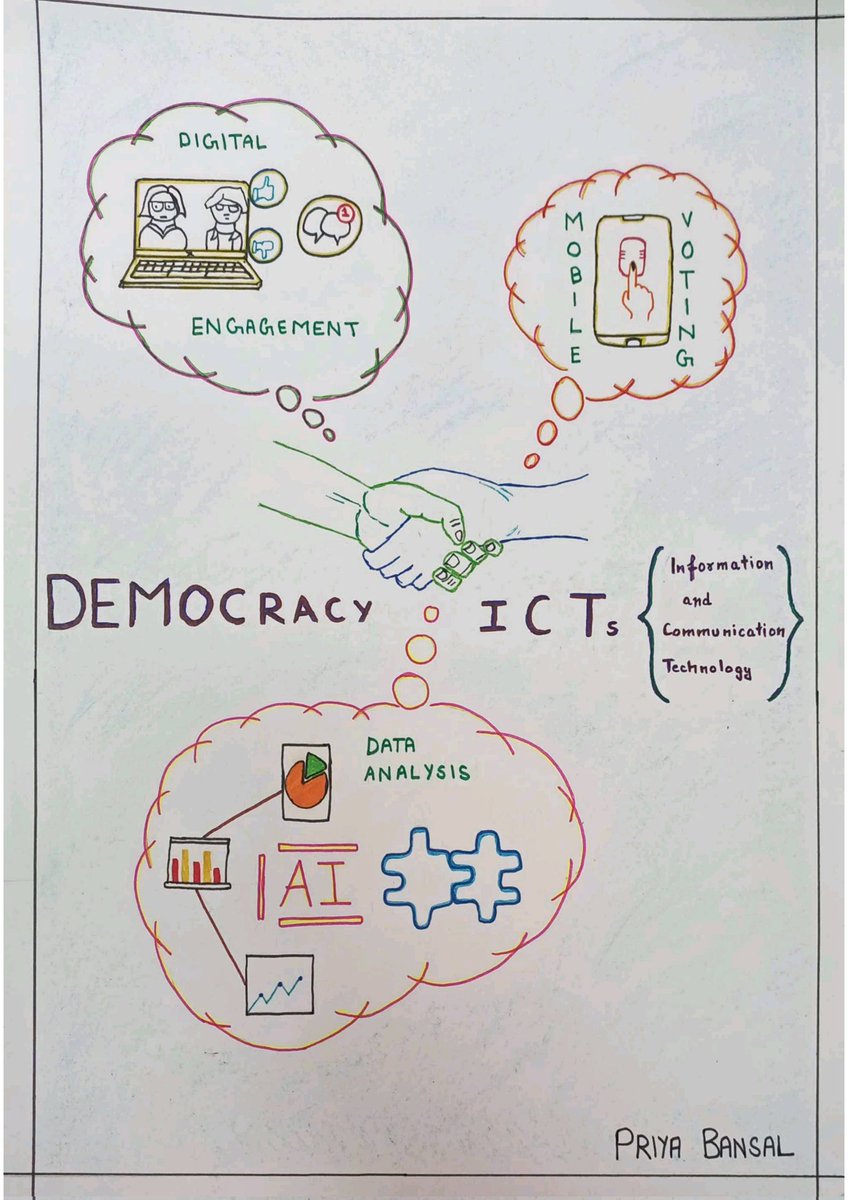 DIGITAL
1
ENGAGEMENT
MOBILE
VOTING
DEMOCRACY
ICTs
Information
and
Communication
Technology
DATA
ANALYSIS
AI
PRIYA BANSAL